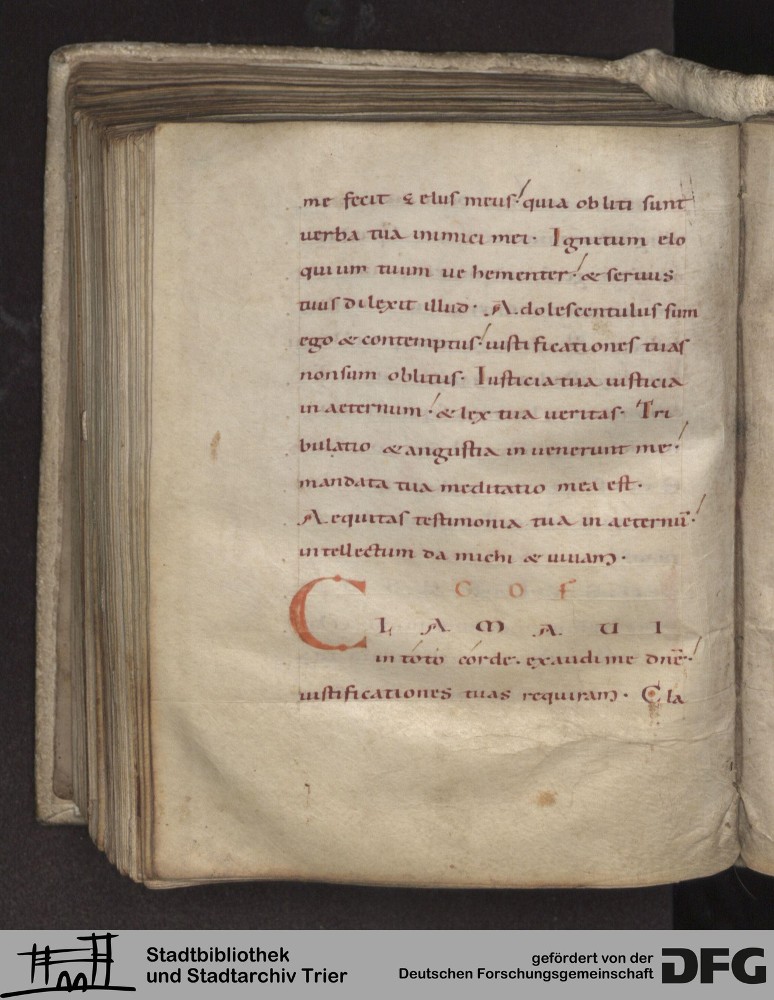 me fecit zelus meus quia obliti sunt
uerba tua inimici mei. Ignitum elo
quium tuum uehementer & seruus
tuus dilexit illud. Adolescentulus sum
ego & contemptus iustificationes tuas
non sum oblitus. Iusticia tua iusticia
in aeternum & lex tua ueritas. Tri
bulatio & angustia inuenerunt me
mandata tua meditatio mea est.
Aequitas testimonia tua in aeternū
intellectum da michi & uiuam.
C O F
CLAMAUI
in toto corde. exaudi me dn̄e
iustificationes tuas requiram. Cla
Stadtbibliothek
und Stadtarchiv Trier
gefördert von der
Deutschen Forschungsgemeinschaft
DFG